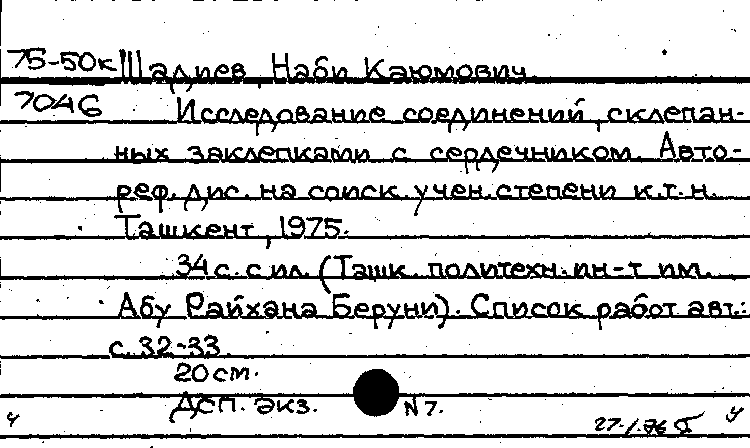 75-50к Шадиев, Наби Каюмович.
7046 Исследование соединений, склепан-
ных заклепками с сердечником. Авто-
реф. дис. на соиск. учен. степени к.т.н.
Ташкент, 1975.
34 с. с ил. (Ташк. политехн. ин-т им.
Абу Райхана Беруни). Список работ авт.:
с. 32-33.
20 см.
Дсп. экз. N 7.
ч 27.1.76 ч